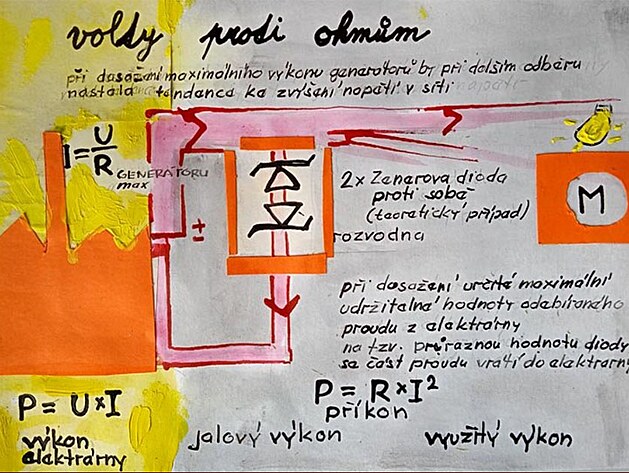 voldy proti ohmům
při dosažení maximálního výkonu generátorů by při dalším odběru
nastala tendence ke zvýšení napětí v síti
I = U/R
GENERÁTORU
max
±
2x Zenerova dioda
proti sobě
(teoretický případ)
rozvodna
M
při dosažení určité maximální
udržitelné hodnoty odebíraného
proudu z elektrárny
na tzv. průraznou hodnotu diody
se část proudu vrátí do elektrárny
P = U×I
výkon
elektrárny
jalový výkon
P = R×I²
příkon
využitý výkon